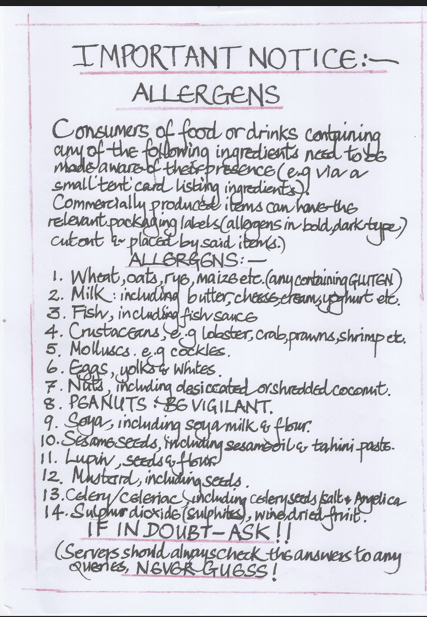 IMPORTANT NOTICE:-
ALLERGENS
Consumers of food or drinks containing
any of the following ingredients need to be
made aware of their presence (e.g via a
small 'tent' card listing ingredients).
Commercially produced items can have the
relevant packaging labels (allergens in bold, dark type)
cut out & placed by said items.)
ALLERGENS:-
1. Wheat, oats, rye, maize etc. (any containing GLUTEN)
2. Milk: including butter, cheese, cream, yoghurt etc.
3. Fish, including fish sauce
4. Crustaceans, e.g lobster, crab, prawns, shrimp etc.
5. Molluscs. e.g cockles.
6. Eggs, yolks & whites.
7. Nuts, including desiccated or shredded coconut.
8. PEANUTS : BE VIGILANT.
9. Soya, including soya milk & flour.
10. Sesame seeds, including sesame oil & tahini paste.
11. Lupin, seeds & flour
12. Mustard, including seeds.
13. Celery/celeriac, including celery seeds/salt & Angelica
14. Sulphur dioxide (sulphites), wine, dried fruit.
IF IN DOUBT-ASK!!
(Servers should always check the answers to any
queries, NEVER GUESS!